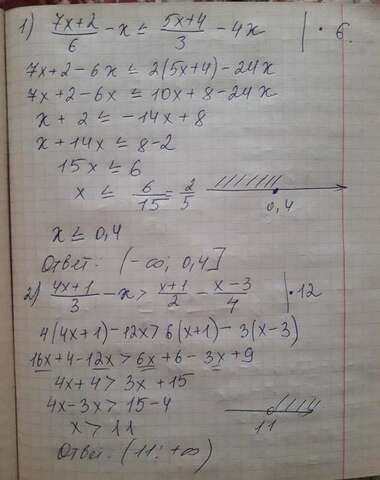 1) (7x+2)/6 - x ≤ (5x+4)/3 - 4x | · 6
7x+2-6x ≤ 2(5x+4)-24x
7x+2-6x ≤ 10x+8-24x
x+2 ≤ -14x+8
x+14x ≤ 8-2
15x ≤ 6
x ≤ 6/15 = 2/5
0,4
x ≤ 0,4
Ответ: (-∞; 0,4]
2) (4x+1)/3 - x > (x+1)/2 - (x-3)/4 | · 12
4(4x+1)-12x > 6(x+1)-3(x-3)
16x+4-12x > 6x+6-3x+9
4x+4 > 3x+15
4x-3x > 15-4
x > 11
11
Ответ: (11; +∞)